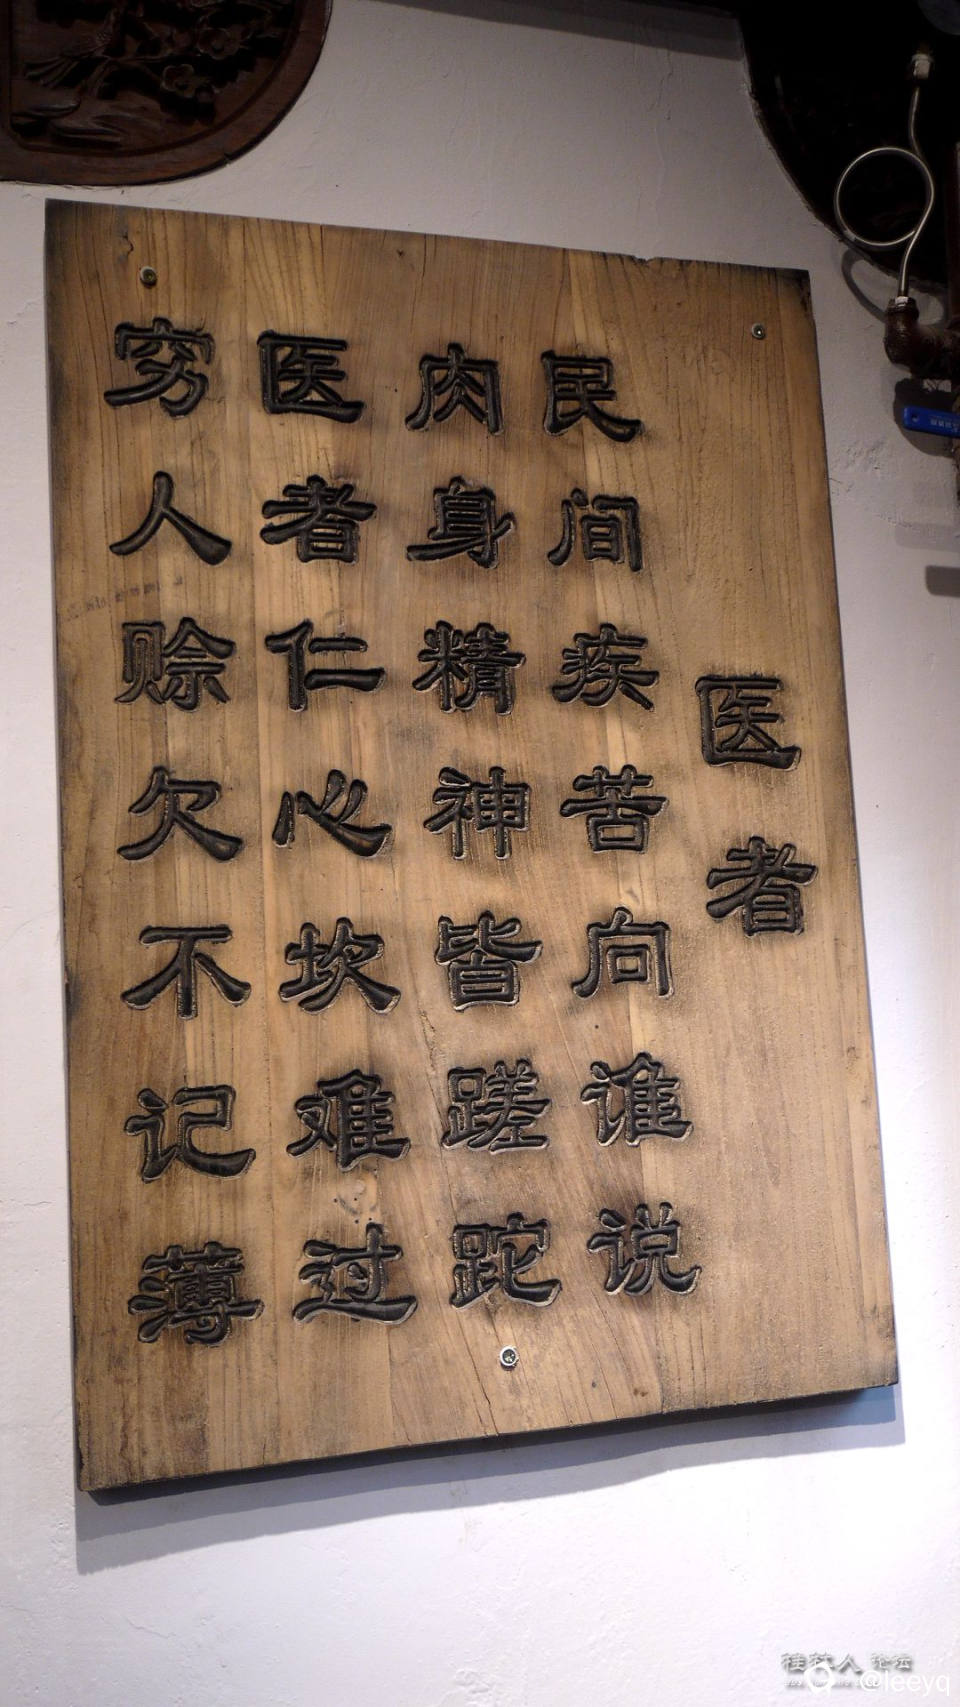 医者
民间疾苦向谁说
肉身精神皆蹉跎
医者仁心坎难过
穷人赊欠不记薄
桂林人论坛
@leeyq